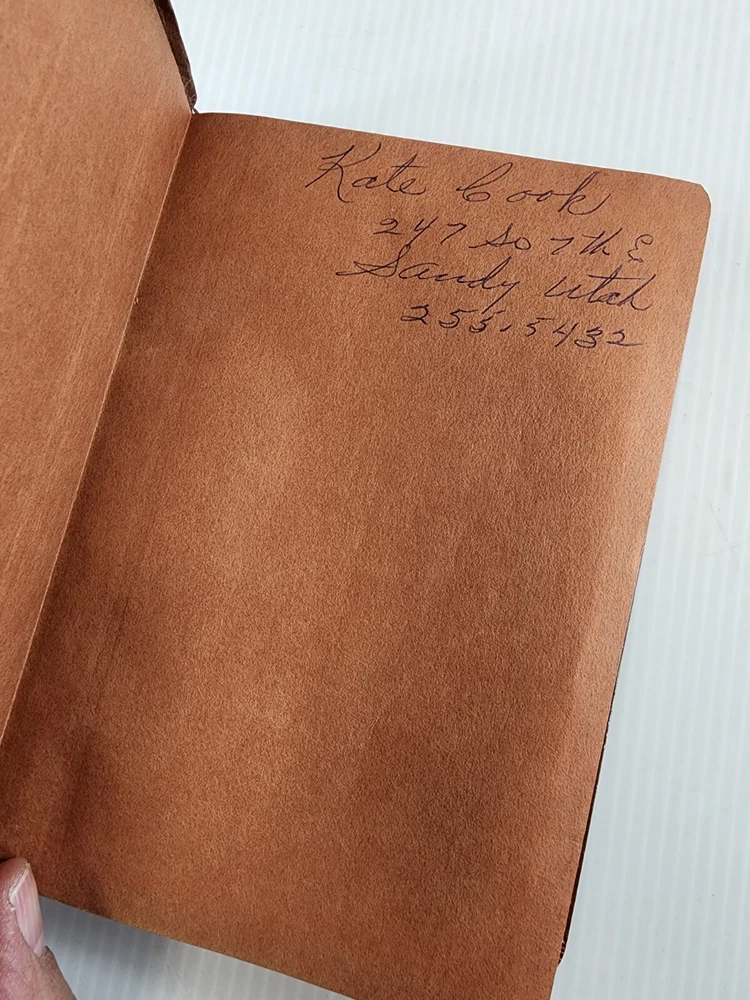 Kate Cook
247 So 7th E
Sandy Utah
255.5432